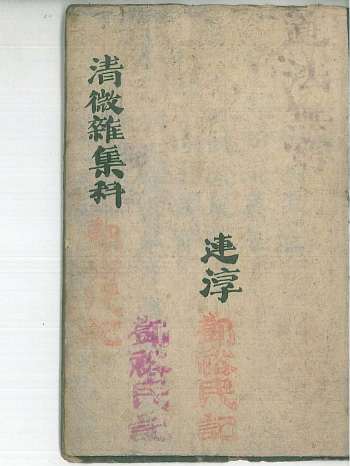 清微雜集科
連淳
鄧裕民記
鄧裕民記